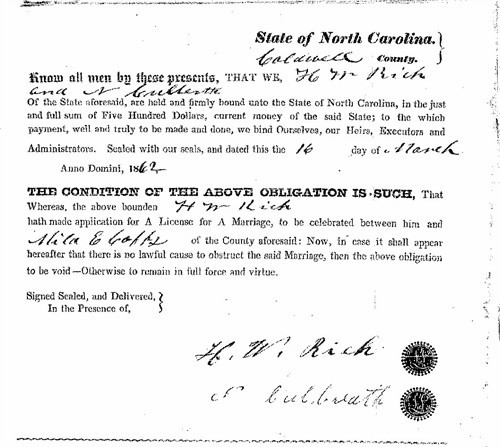 State of North Carolina. }
Caldwell County.
Know all men by these presents, THAT WE, H W Rick
and N Culbreth
Of the State aforesaid, are held and firmly bound unto the State of North Carolina, in the just
and full sum of Five Hundred Dollars, current money of the said State; to the which
payment, well and truly to be made and done, we bind Ourselves, our Heirs, Executors and
Administrators. Sealed with our seals, and dated this the 16 day of March
Anno Domini, 1862
THE CONDITION OF THE ABOVE OBLIGATION IS SUCH, That
Whereas, the above bounden H W Rick
hath made application for A License for A Marriage, to be celebrated between him and
E of the County aforesaid: Now, in case it shall appear
hereafter that there is no lawful cause to obstruct the said Marriage, then the above obligation
to be void—Otherwise to remain in full force and virtue.
Signed Sealed, and Delivered, }
In the Presence of,
H. W. Rick
N Culbreath